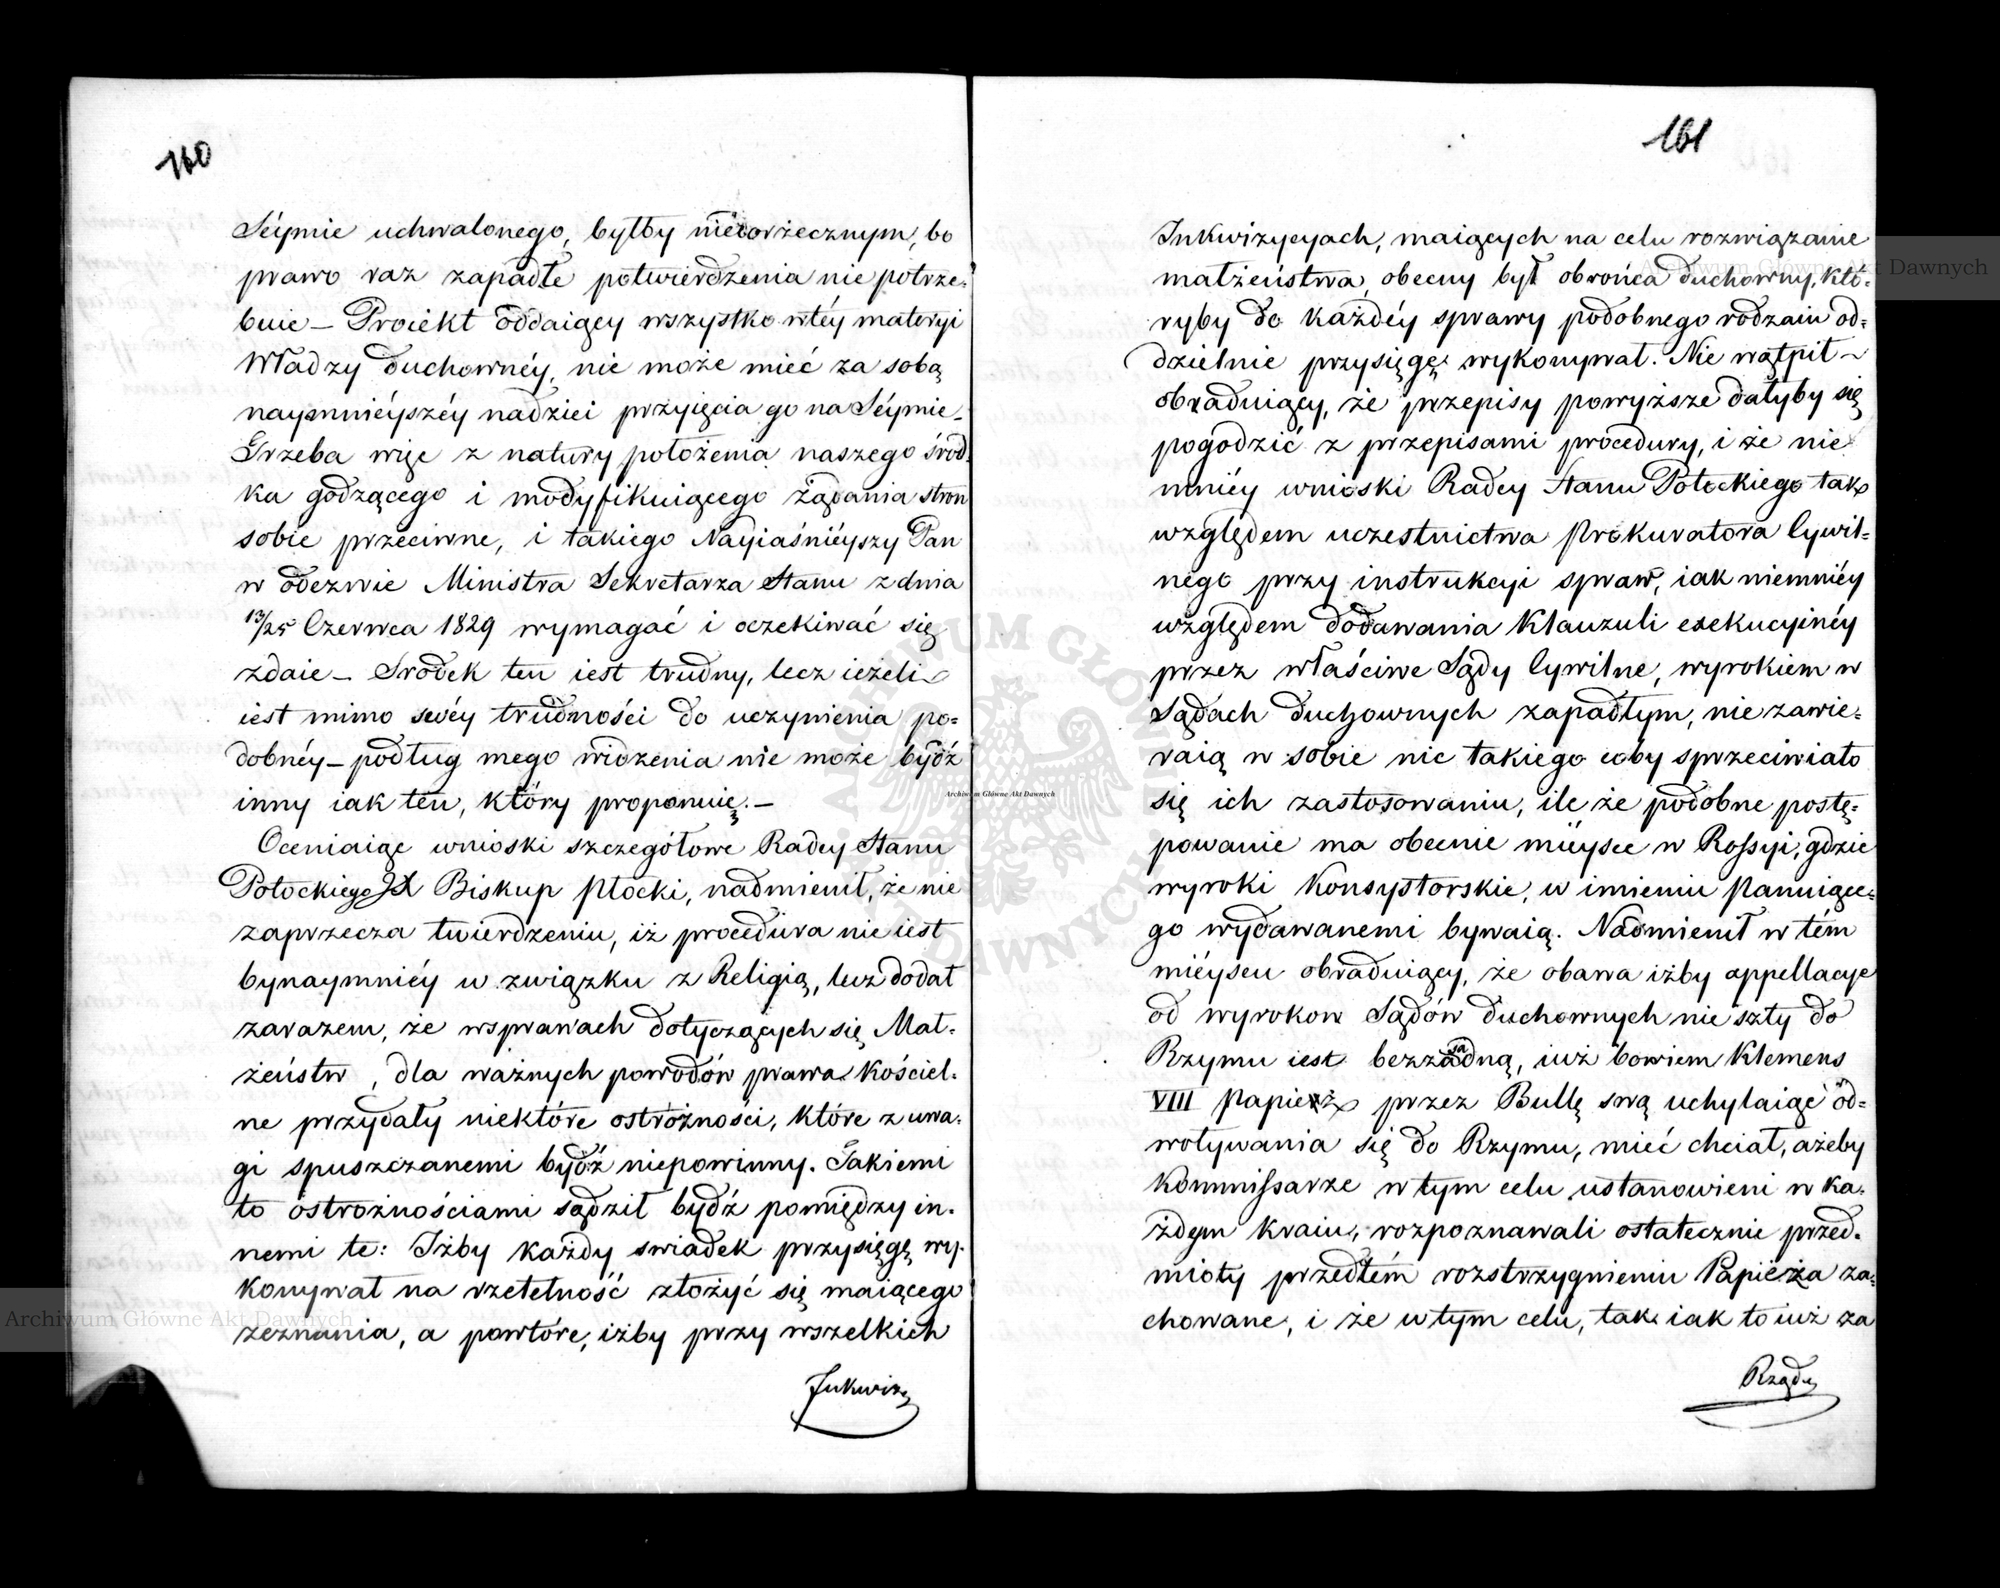 160
Séymie uchwalonego, byłby niedorzecznym, bo
prawo raz zapadłe potwierdzenia nie potrze-
buie – Proiekt oddaiący wszystko w téy materyi
Władzy duchownéy, nie może mieć za sobą
naymnieyszéy nadziei przyięcia go na Séymie –
Trzeba więc z natury położenia naszego środ-
ka godzącego i modyfikuiącego żądania stron
sobie przeciwne, i takiego Nayiaśnieyszy Pan
w odezwie Ministra Sekretarza Stanu z dnia
13/25 Czerwca 1829 wymagać i oczekiwać się
zdaie – Srodek ten iest trudny, lecz ieżeli
iest mimo swéy trudności do uczynienia po-
dobnéy – podług mego widzenia nie może bydź
inny iak ten, który proponuię. –
Oceniaiąc wnioski szczegółowe Radcy Stanu
Potockiego JX Biskup Płocki, nadmienił, że nie
zaprzecza twierdzeniu, iż procedura nie iest
bynaymniéy w związku z Religią, lecz dodał
zarazem, że w sprawach dotyczących się Mał-
żeństw, dla ważnych powodów prawa Kościel-
ne przydały niektóre ostróżności, które z uwa-
gi spuszczanemi bydź niepowinny. Takiemi
to ostrożnościami sądził bydź pomiędzy in-
nemi te: Iżby każdy swiadek przysięgę wy-
konywał na rzetelność złożyć się maiącego
zeznania, a powtóre, iżby przy wszelkich
Inkwizy
161
Inkwizycyach, maiących na celu rozwiązanie
małżeństwa, obecny był obrońca duchowny, któ-
ryby do każdéy sprawy podobnego rodzaiu od-
dzielnie przysięgę wykonywał. Nie wątpił
obraduiący, że przepisy powyższe dałyby się
pogodzić z przepisami procedury, i że nie
mniéy wnioski Radcy Stanu Potockiego tak
względem uczestnictwa Prokuratora Cywil-
nego przy instrukcyi spraw, iak niemniéy
względem dodawania Klauzuli exekucyinéy
przez właściwe Sądy Cywilne, wyrokiem w
Sądach duchownych zapadłym, nie zawie-
raią w sobie nic takiego coby sprzeciwiało
się ich zastosowaniu, ile że podobne postę-
powanie ma obecnie mieysce w Rossyi, gdzie
wyroki Konsystorskie, w imieniu Panuiące-
go wydawanemi bywaią. Nadmienił w tém
miéyscu obraduiący, że obawa iżby appellacye
od wyrokow Sądów duchownych nie szły do
Rzymu iest bezzasadną, iuż bowiem Klemens
VIII Papież przez Bullę swą uchylaiąc od-
woływania się do Rzymu, mieć chciał, ażeby
Kommissarze w tym celu ustanowieni w ka-
żdym kraiu, rozpoznawali ostatecznie przed-
mioty przedtém rozstrzygnieniu Papieża za-
chowane, i że w tym celu, tak iak to iuż za
Rządu
ARCHIWUM GŁÓWNE AKT DAWNYCH
Archiwum Główne Akt Dawnych
Archiwum Główne Akt Dawnych
Archiwum Główne Akt Dawnych